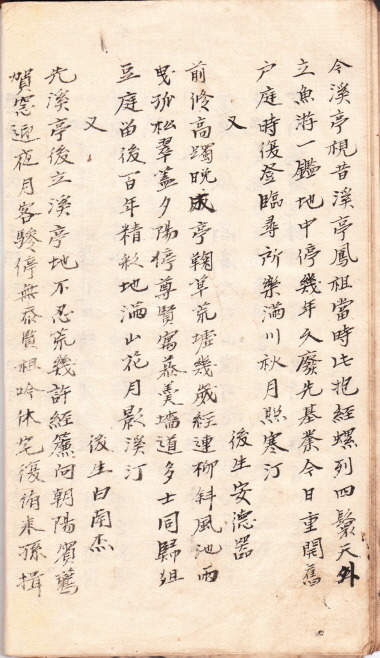 今溪亭槐昔溪亭鳳祖當時比抱經螺列四鬟天外
立魚游一鑑地中停幾年久廢先基業今日重開舊
户庭時復登臨尋所樂滿川秋月照寒汀
又 後生安德器
前修高躅晩成亭鞠草荒墟幾歲經連柳斜風池雨
曳孤松翠蓋夕陽停尊賢寓慕羹墻道多士同歸俎
豆庭留後百年精彩地滿山花月影溪汀
又 後生白南杰
先溪亭後立溪亭地不忍荒幾許經簾向朝陽賓鷰
賀窓迎夜月客驂停無忝賢祖吟休宅復誦來孫揖